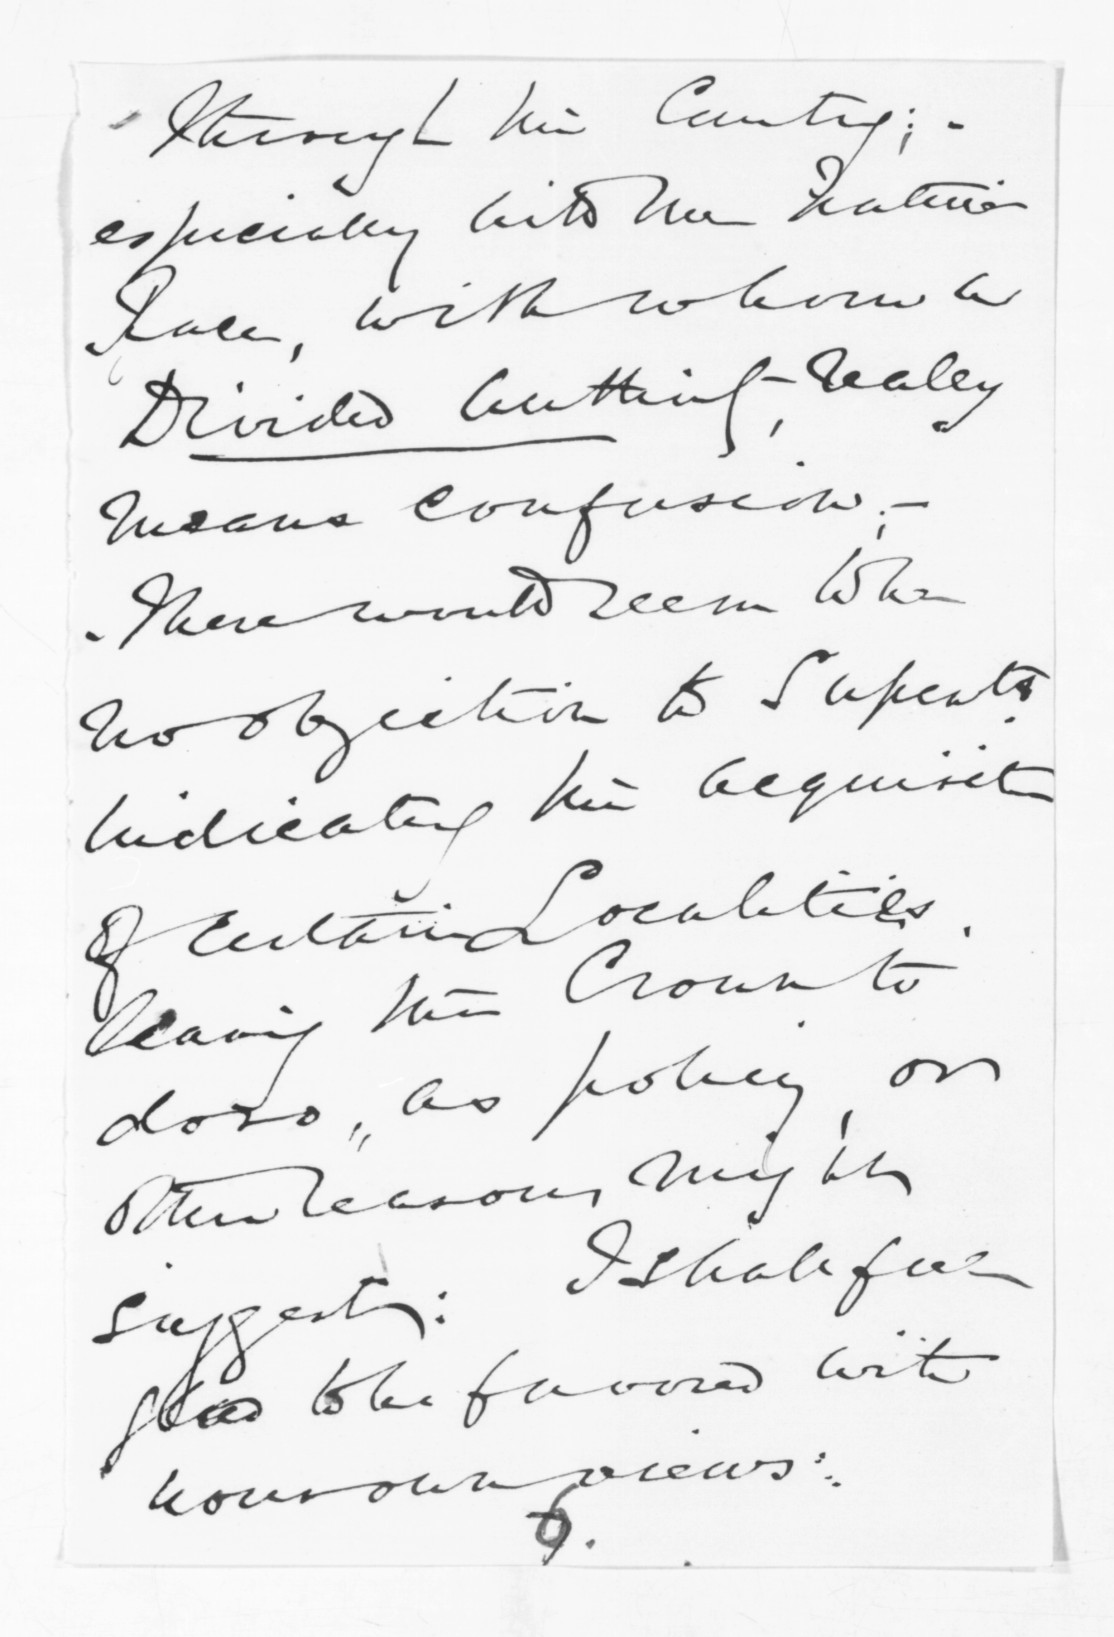 through the Country; -
especially with the Native
Race, with whom a
Divided Authority, realy
means confusion; -
There would seem to be
no objection to Supents.
indicating the acquisitn
of certain Localities,
leaving the Crown to
do so, as policy, or
other reasons, might
suggest: I shall feel
glad to be favored with
your own views:
6.